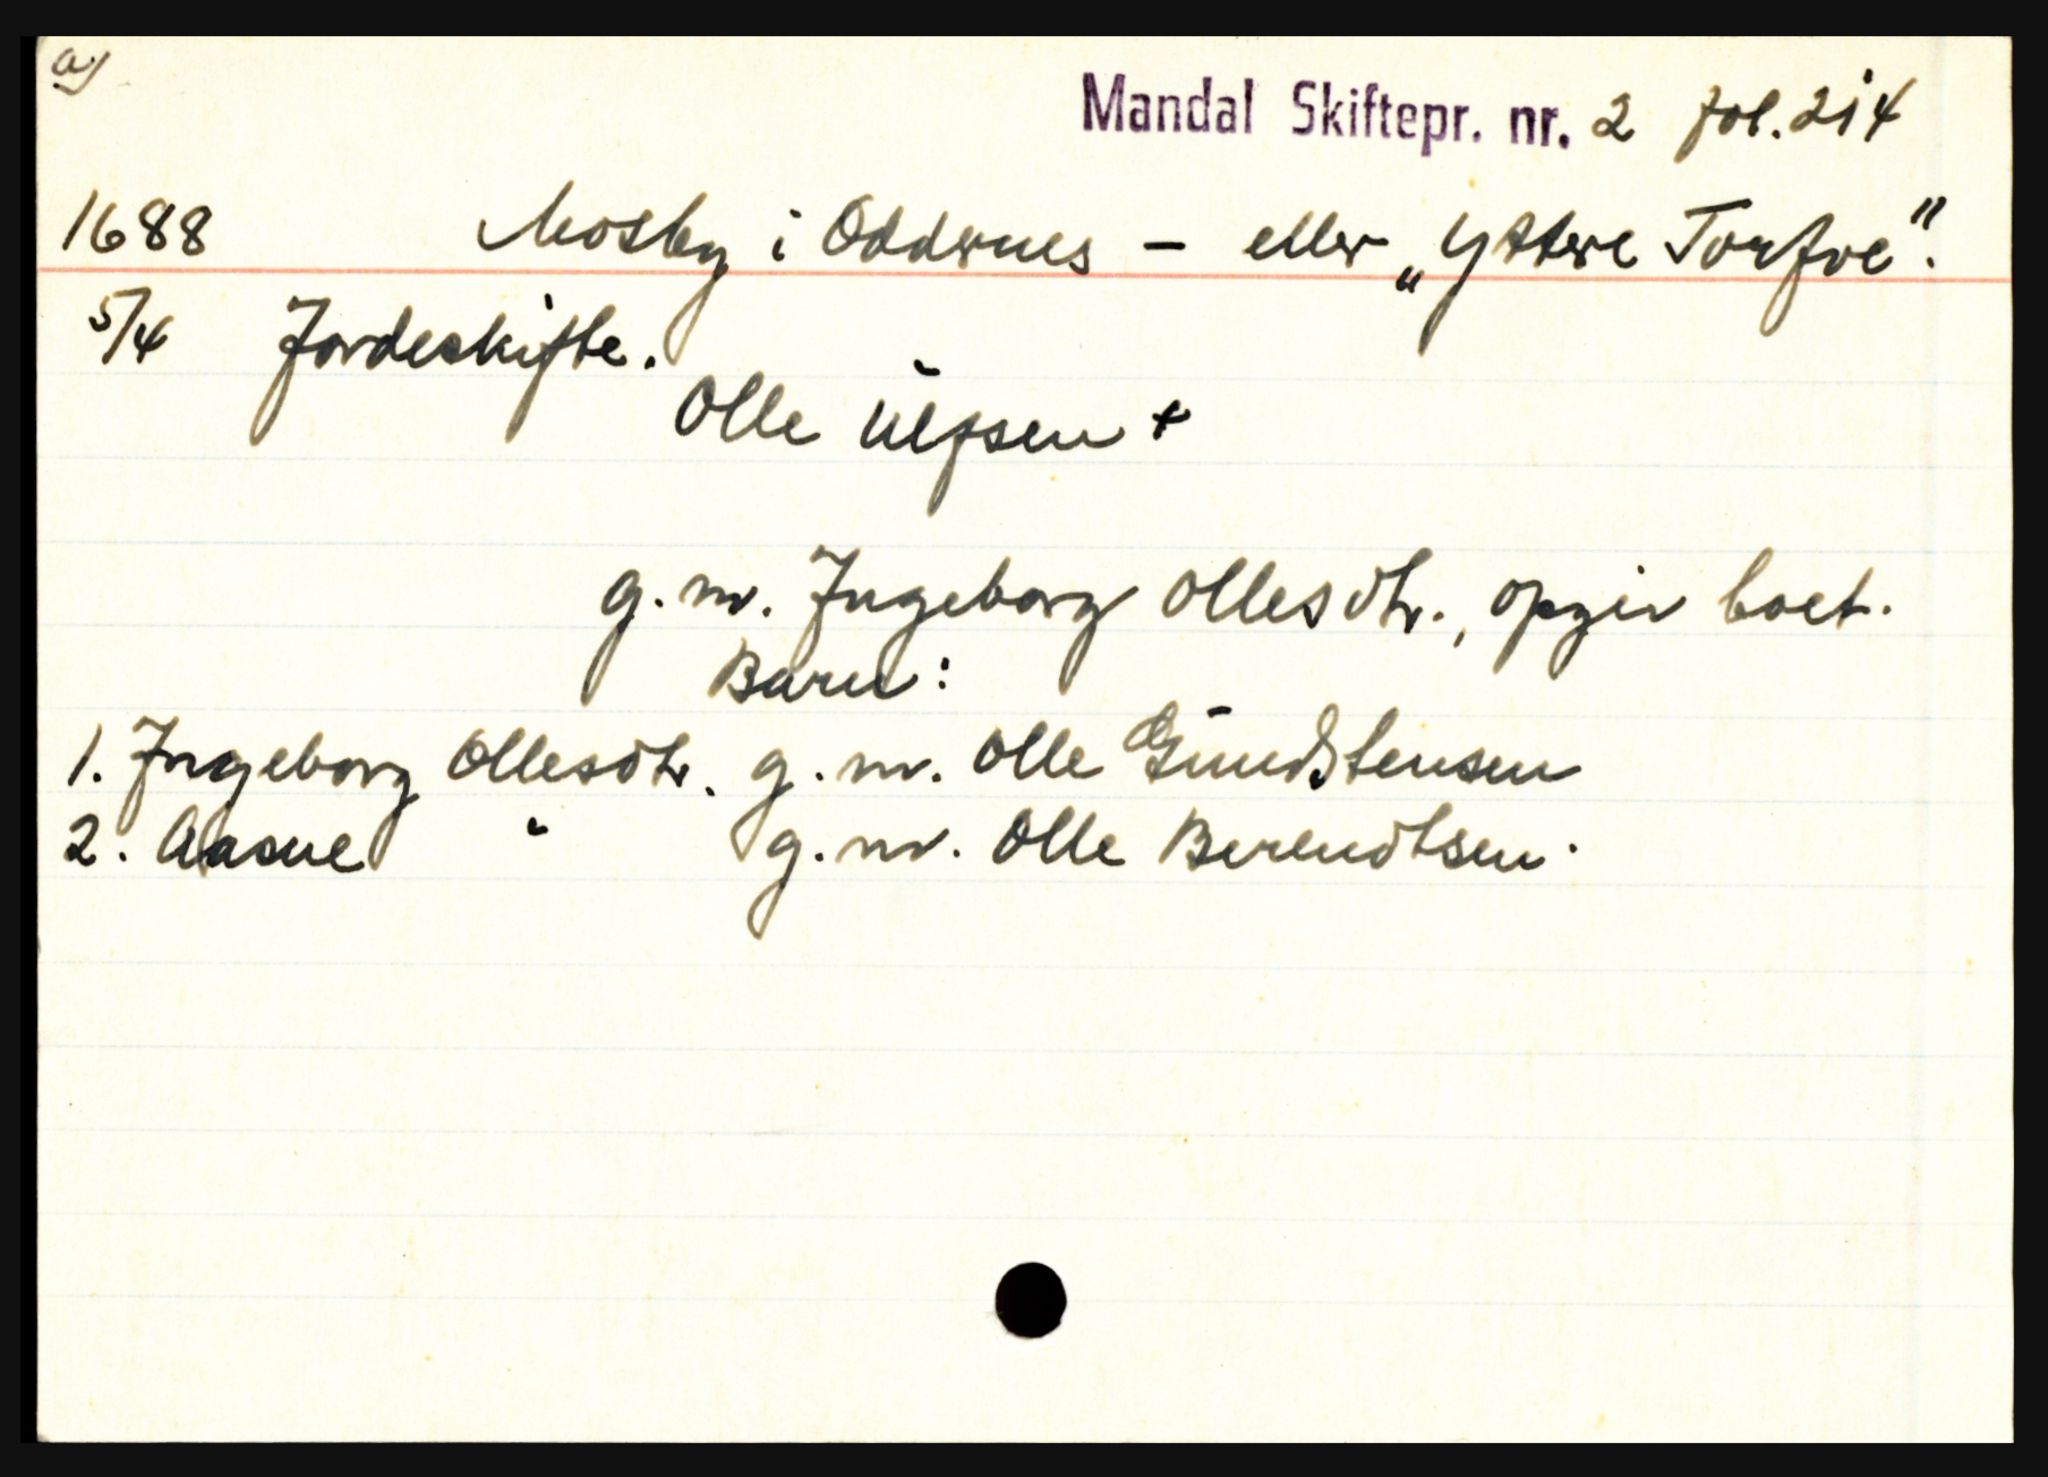 a)
Mandal Skiftepr. nr. 2 fol. 214
1688 Mosby i Oddernes - eller „Yttere Torfve".
5/4 Jordeskifte.
Olle Ulfsen +
g. m. Ingeborg Ollesdtr., opgir boet.
Barn:
1. Ingeborg Ollesdtr. g. m. Olle Gundstensen
2. Aasne " g. m. Olle Berendtsen.